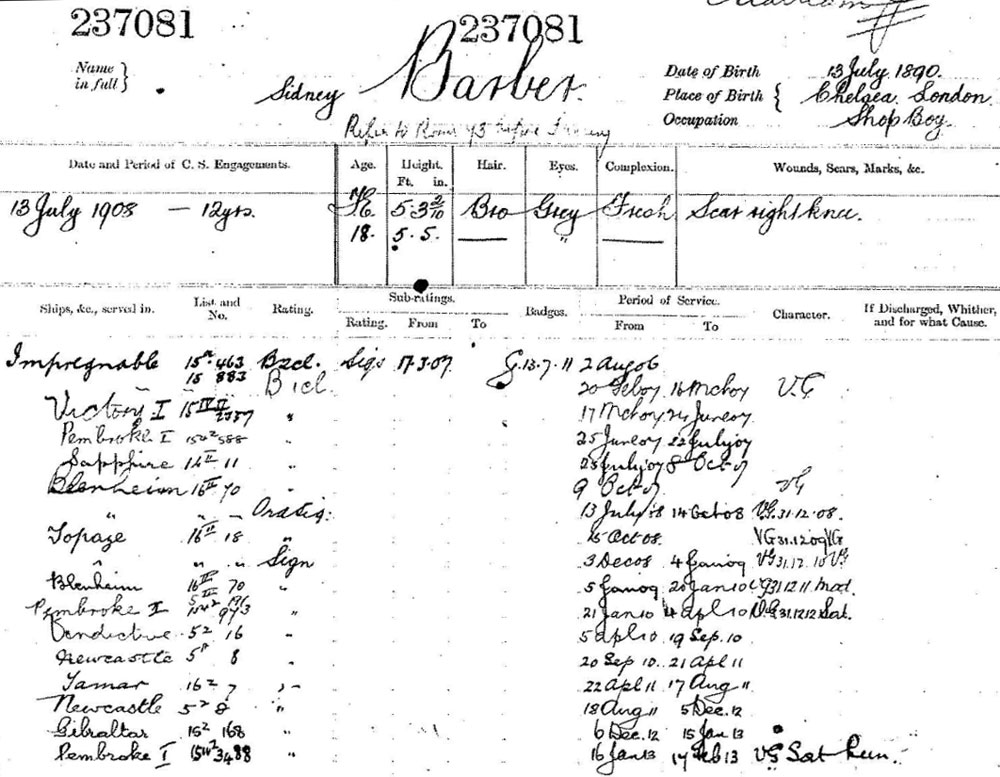 237081
237081
Name in full } Sidney Barber.
Date of Birth 13 July 1890.
Place of Birth { Chelsea. London.
Occupation Shop Boy.
Refer to Room 43 before
Date and Period of C. S. Engagements. Age. Height. Ft. in. Hair. Eyes. Complexion. Wounds, Scars, Marks, &c.
13 July 1908 — 12yrs. 5·3 2/10 Bro Grey Fresh Scar right knee.
18. 5. 5. — " —
Ships, &c., served in. List and No. Rating. Sub-ratings. Rating. From To Badges. Period of Service. From To Character. If Discharged, Whither, and for what Cause.
Impregnable 15 463 B2cl. Sigs 17.3.07. G.13.7.11 2 Aug 06
15 883 B 1cl. 20 Feb 07 16 Mch 07 V.G
Victory I 15 " 17 Mch 07 24 June 07
Pembroke I 15 588 " 25 June 07 22 July 07
Sapphire 11 " 23 July 07 8 Oct 07
Blenheim 16 70 " 9 Oct 07 VG
" " " Ordsig: 13 July 08 14 Oct 08 VG.31.12.08.
Topaze 16 18 " 15 Oct 08. VG 31.12.09 VG
" " " Sign 3 Dec 08 4 Jan 09 VG 31.12.10 VG
Blenheim 16 70 " 5 Jan 09 20 Jan 10 VG 31 12 11 Mod.
Pembroke I 973 " 21 Jan 10 4 Apl 10 V.G 31.12.12 Sat.
Vindictive 5 16 " 5 Apl 10 19 Sep. 10
Newcastle 5 8 " 20 Sep 10. 21 Apl 11
Tamar 16 7 " 22 Apl 11 17 Aug 11.
Newcastle 5 8 " 18 Aug 11 5 Dec. 12
Gibraltar 15 168 " 6 Dec. 12 15 Jan 13
Pembroke I 15 3488 " 16 Jan 13 17 Feb 13 VG Sat Run.